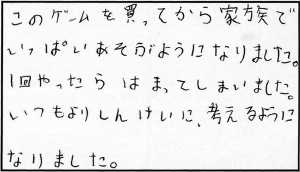 このゲームを買ってから家族で
いっぱいあそぶようになりました。
1回やったらはまってしまいました。
いつもよりしんけいに、考えるように
なりました。